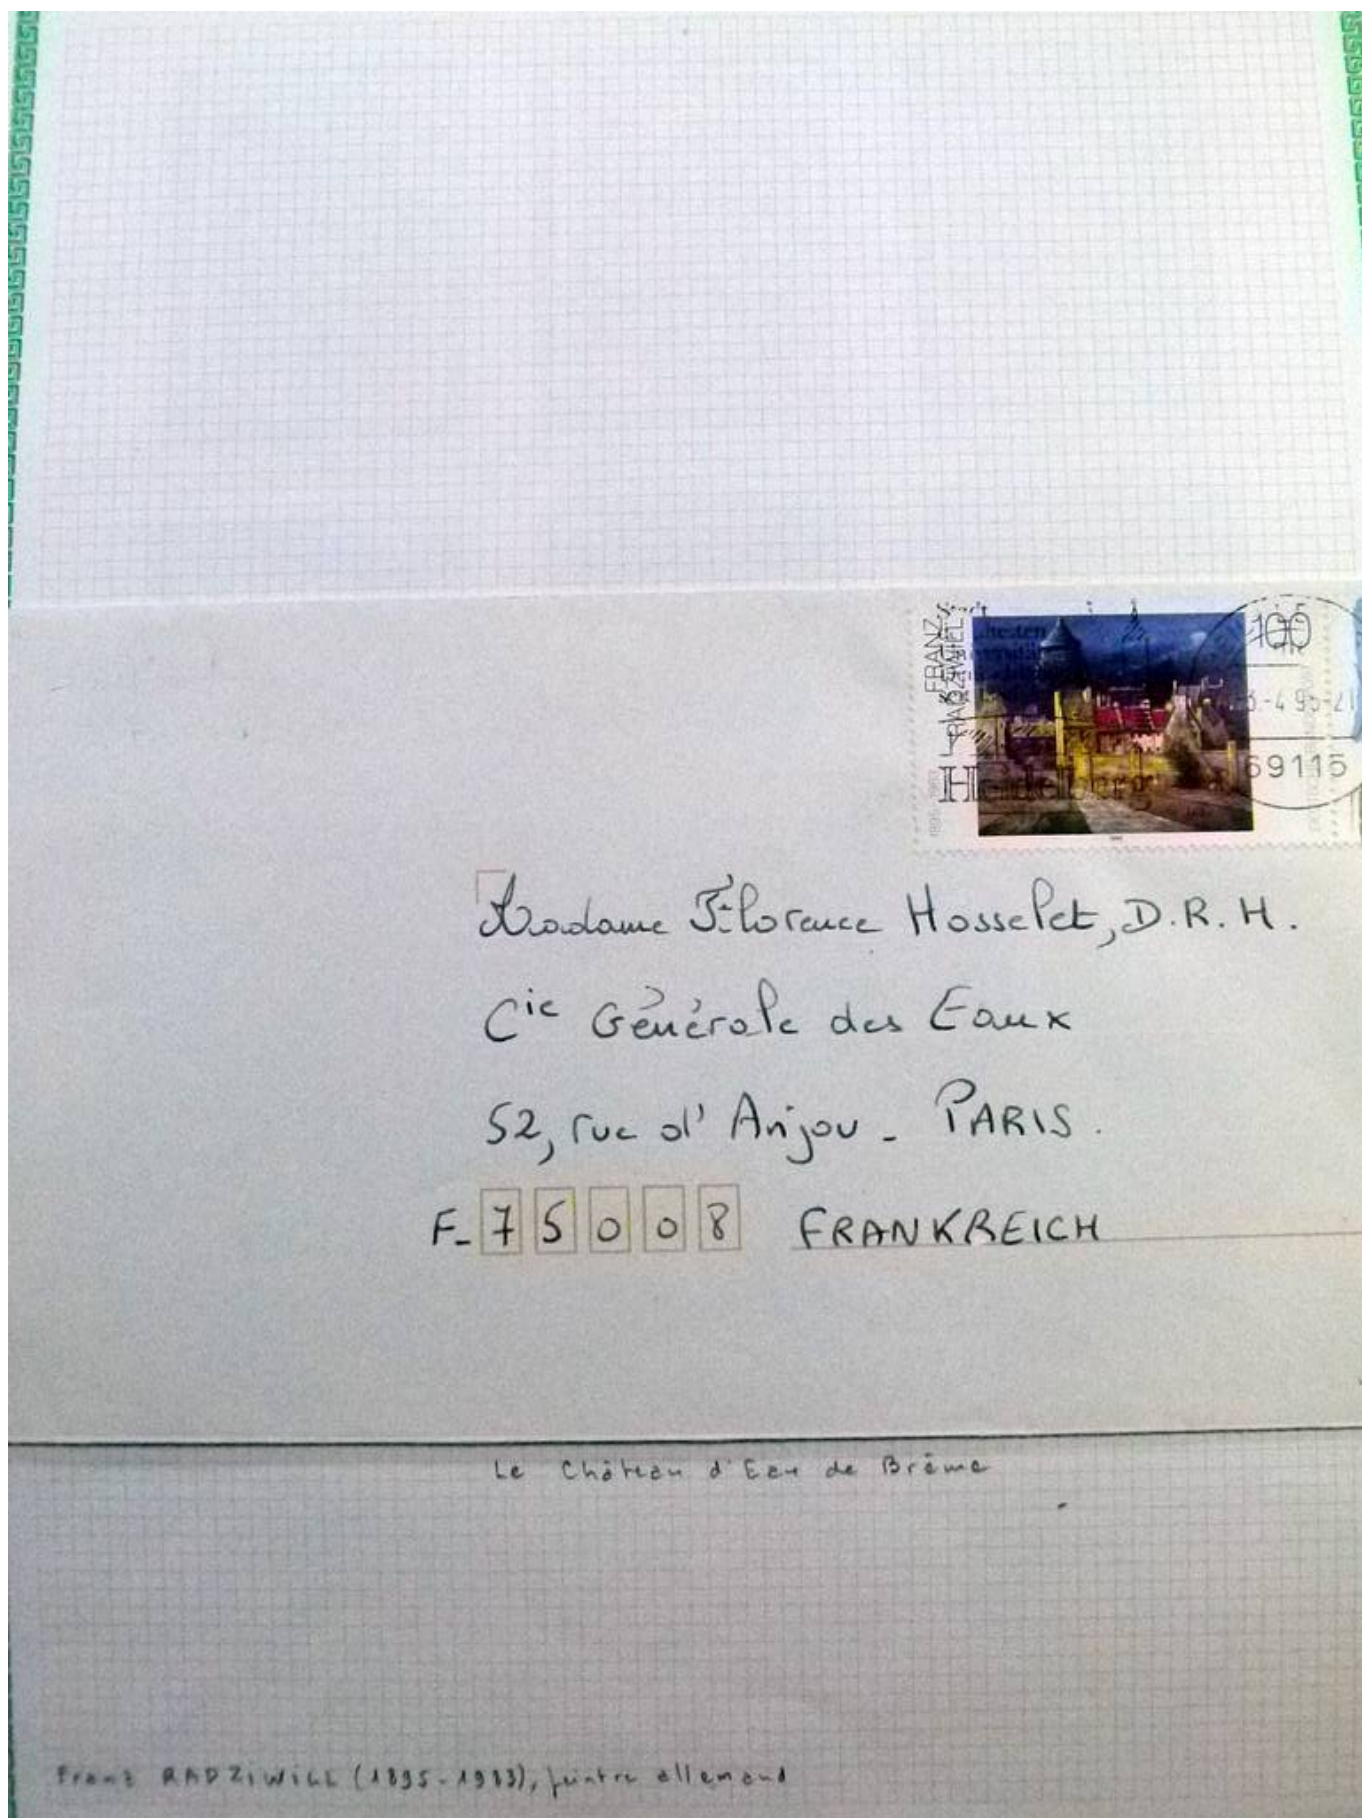 FRANZ
RADZIWILL
1895-1983
100
-4.95-21
69115
Heidelberg
Madame Florence Hosselet, D.R.H.
Cie Générale des Eaux
52, rue d'Anjou - PARIS.
F-75008 FRANKREICH
Le Château d'Eau de Brême
Franz RADZIWILL (1895-1983), peintre allemand